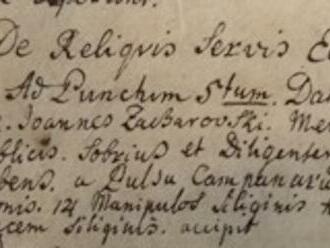 De Reliqvis Servis E
Ad Punctum 5tum. Da
Joannes Zacharovski. Me
blicis. Sobrius et Diligenter
bens. a Pulsu Campanaru
onis. 124 Manipulos Siliginis
cem Siliginis. accipit